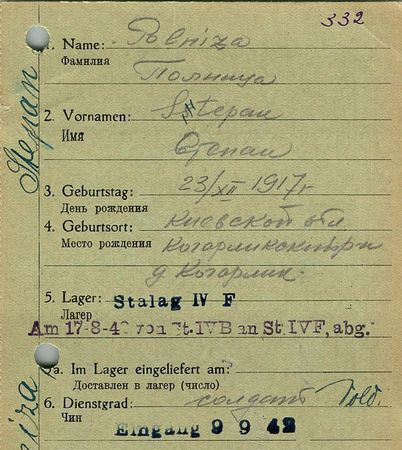 332
1. Name: Polniza
Фамилия Полница
2. Vornamen: Stepan
Имя Степан
3. Geburtstag: 23/XII 1917 г
День рождения
4. Geburtsort: Киевской обл
Место рождения Когарликский р-н
д Когарлик.
5. Lager: Stalag IV F
Лагер
Am 17-8-42 von St.IVB an St.IVF, abg.
5a. Im Lager eingeliefert am:
Доставлен в лагер (число)
6. Dienstgrad: солдат Sold.
Чин
Eingang 9 9 42
Stepan
niza